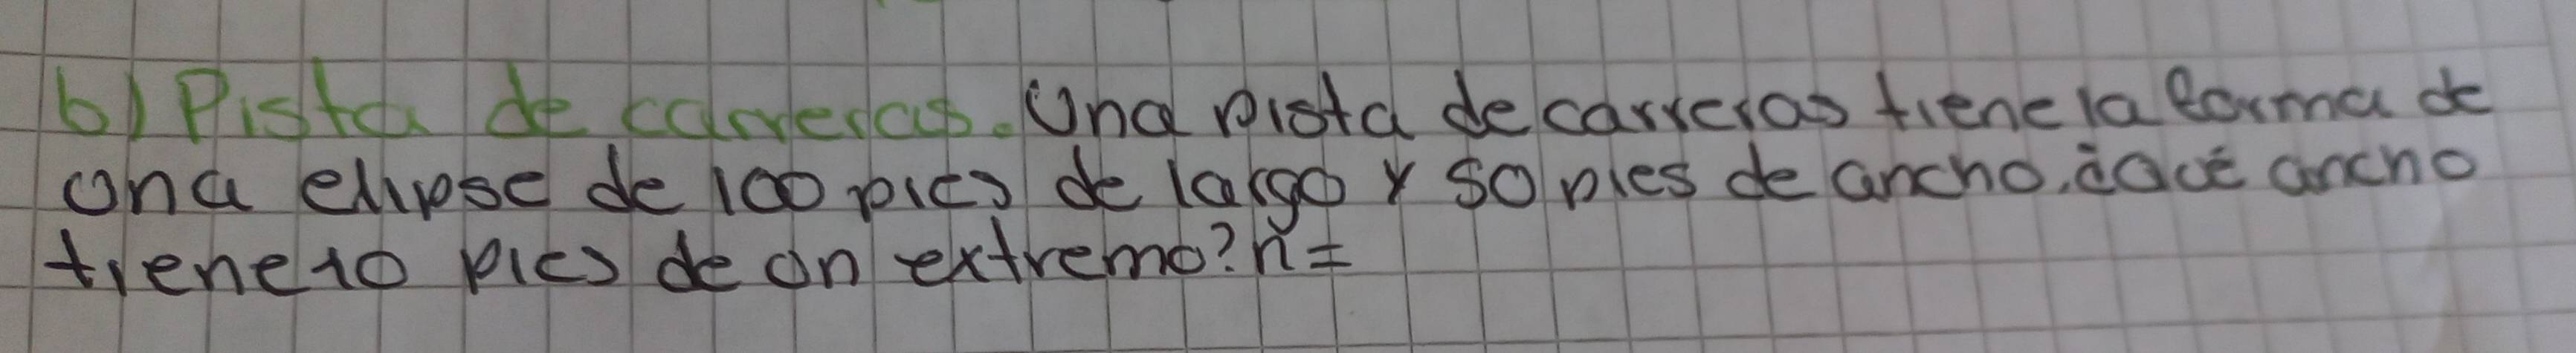 b) Pista de carreras. Una pista de carreras tiene la forma de
una elipse de 100 pies de largo y 50 pies de ancho. ¿Qué ancho
tiene 10 pies de un extremo? n=